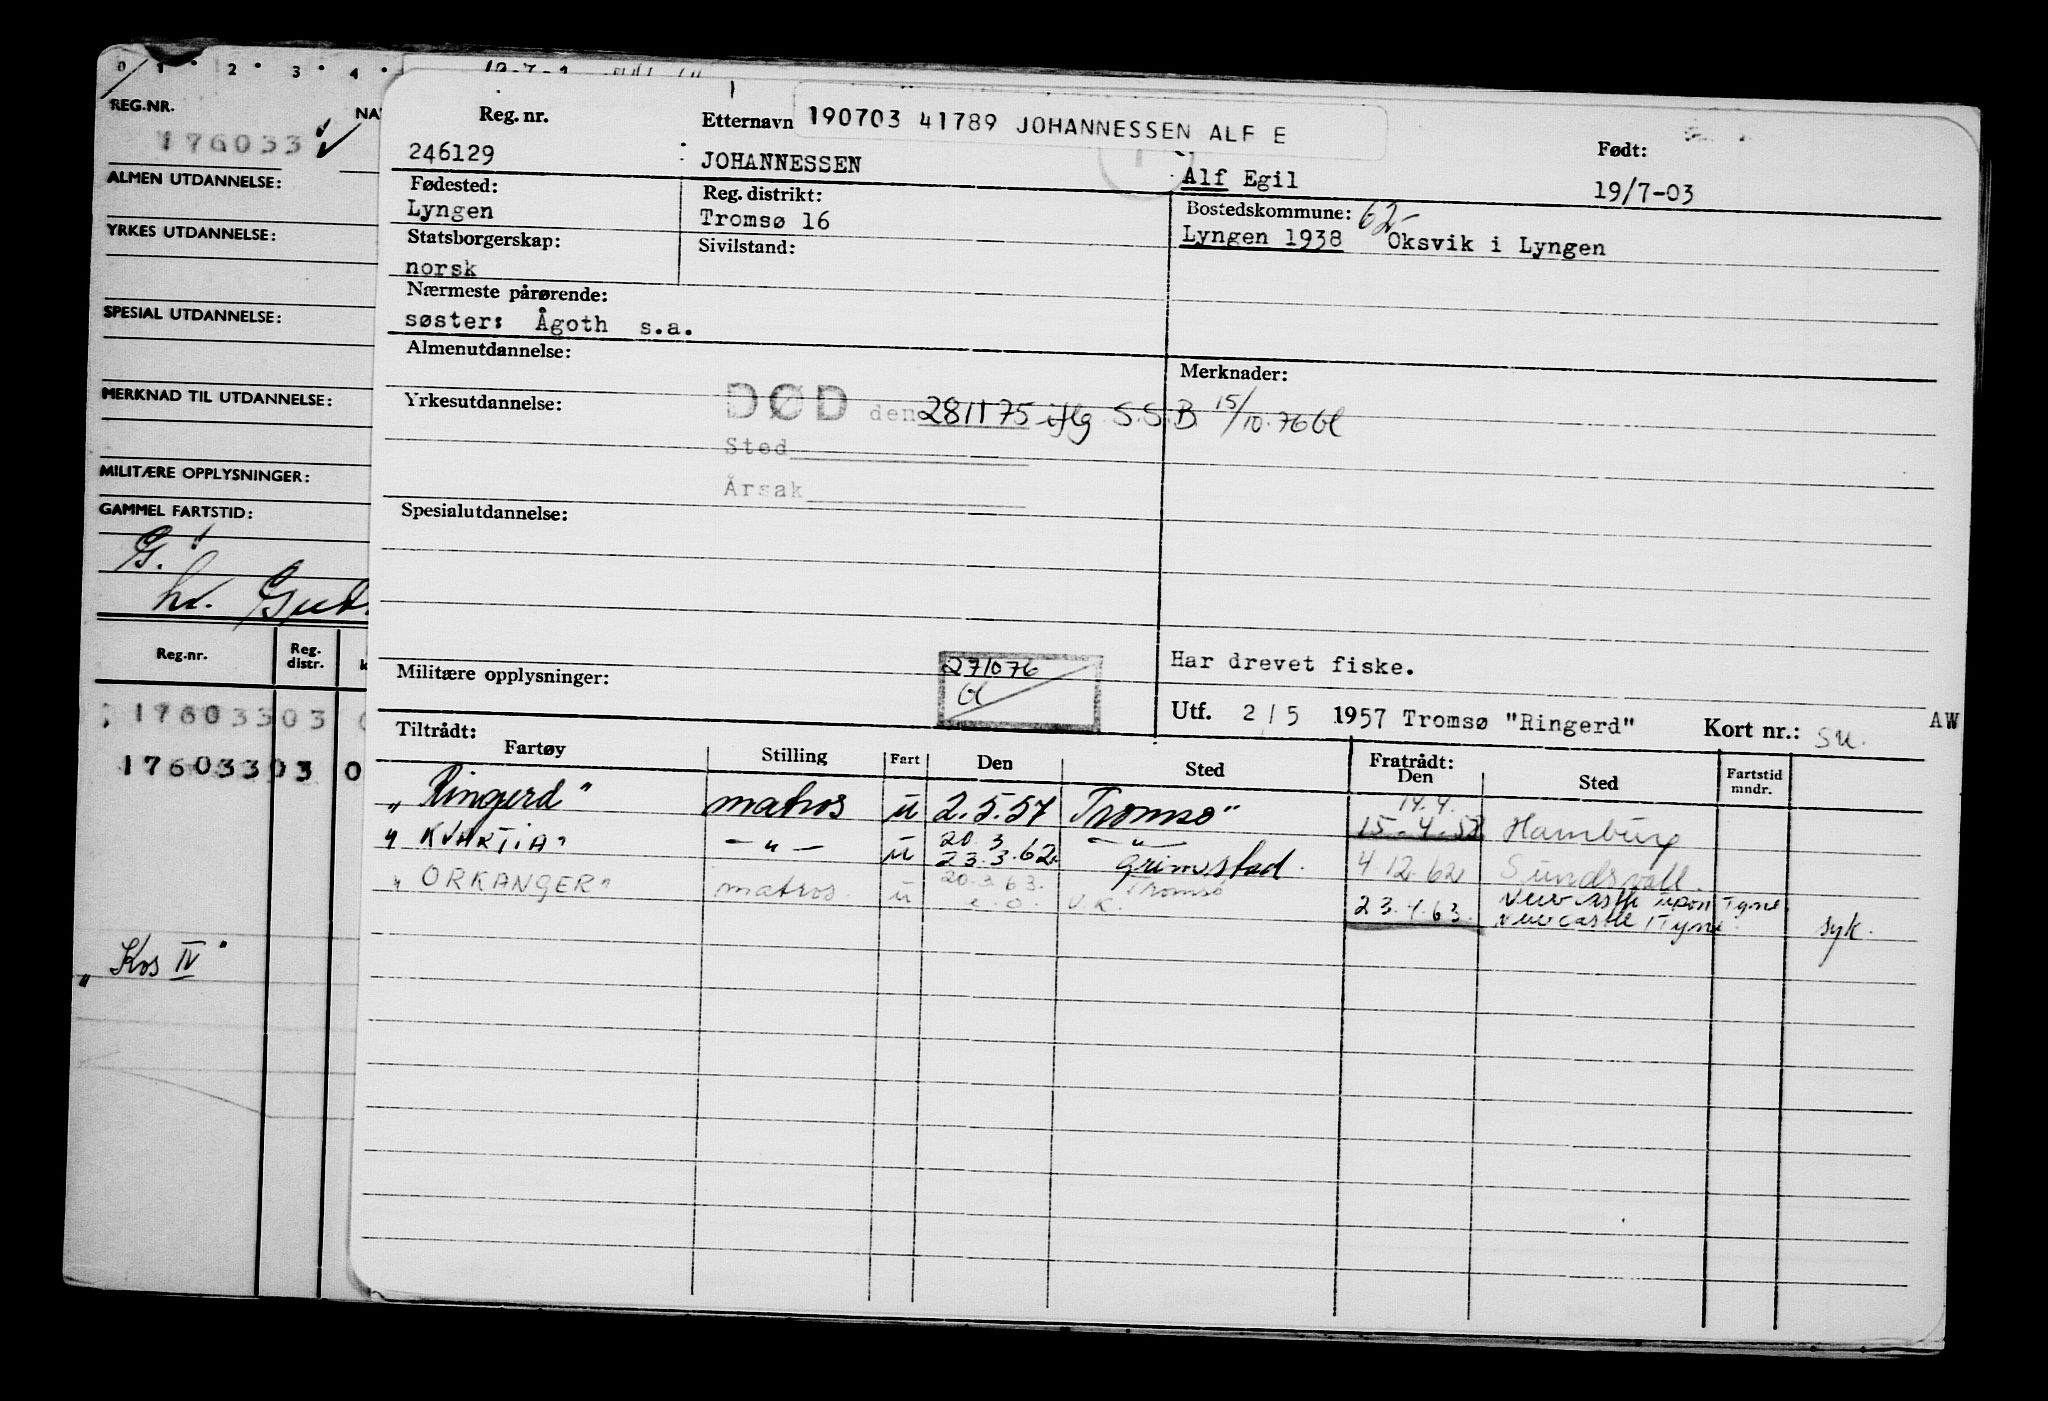 0 1 2 3 4
REG.NR.
176033
ALMEN UTDANNELSE:
YRKES UTDANNELSE:
SPESIAL UTDANNELSE:
MERKNAD TIL UTDANNELSE:
MILITÆRE OPPLYSNINGER:
GAMMEL FARTSTID:
G.
Reg.nr. Reg. distr.
17603303
17603303 0
"Kos IV"
Reg. nr. Etternavn 190703 41789 JOHANNESSEN ALF E Født:
246129 JOHANNESSEN Alf Egil 19/7-03
Fødested: Reg. distrikt: Bostedskommune: 62-
Lyngen Tromsø 16 Lyngen 1938 Oksvik i Lyngen
Statsborgerskap: Sivilstand:
norsk
Nærmeste pårørende:
søster: Ågoth s.a.
Almenutdannelse: Merknader:
Yrkesutdannelse: DØD den 281175 iflg S.S.B. 15/10.76
Sted
Årsak
Spesialutdannelse:
Har drevet fiske.
Militære opplysninger: 271076
Utf. 2/5 1957 Tromsø "Ringerd" Kort nr.: su. AW
Tiltrådt: Fratrådt:
Fartøy Stilling Fart Den Sted Den Sted Fartstid mndr.
14.4.
"Ringerd" matros u 2.5.57 Tromsø 15-4-58 Hamburg
20.3 - " -
"KVARTIA" - " - u 23.3.62 Grimstad. 4.12.62 Sundsvall.
20.3.63. Tromsø Newcastle upon Tyne
"ORKANGER" matros. u V.K. 23.4.63. Newcastle /Tyne. syk.